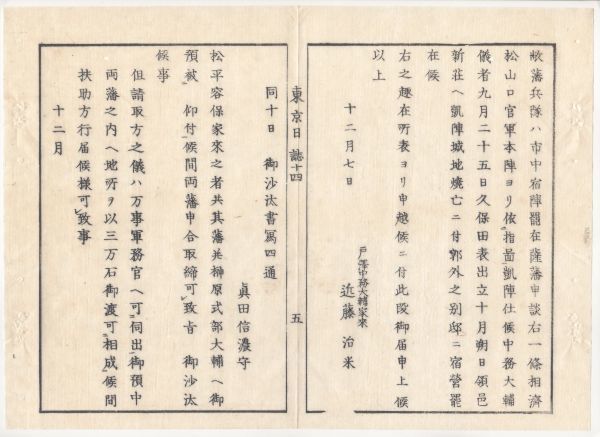 敝藩兵隊ハ市中宿陣罷在薩藩申談右一條相濟
松山口官軍本陣ヨリ依指啚凱陣仕候中務大輔
儀者九月二十五日久保田表出立十月朔日領邑
新荘ヘ凱陣城地燒亡ニ付郭外之別邸ニ宿營罷
在候
右之趣在所表ヨリ申越候ニ付此段御届申上候
以上
十二月七日
戸澤中務大輔家來
近藤治米
東京日誌十四
五
同十日 御沙汰書寫四通
眞田信濃守
松平容保家來之者共其藩共榊原式部大輔ヘ御
預被 仰付候間両藩申合取締可致旨 御沙汰
候事
但請取方之儀ハ万事軍務官ヘ可伺出御預中
両藩之内ヘ地所ヲ以三万石御渡可相成候間
扶助方行届候様可致事
十二月